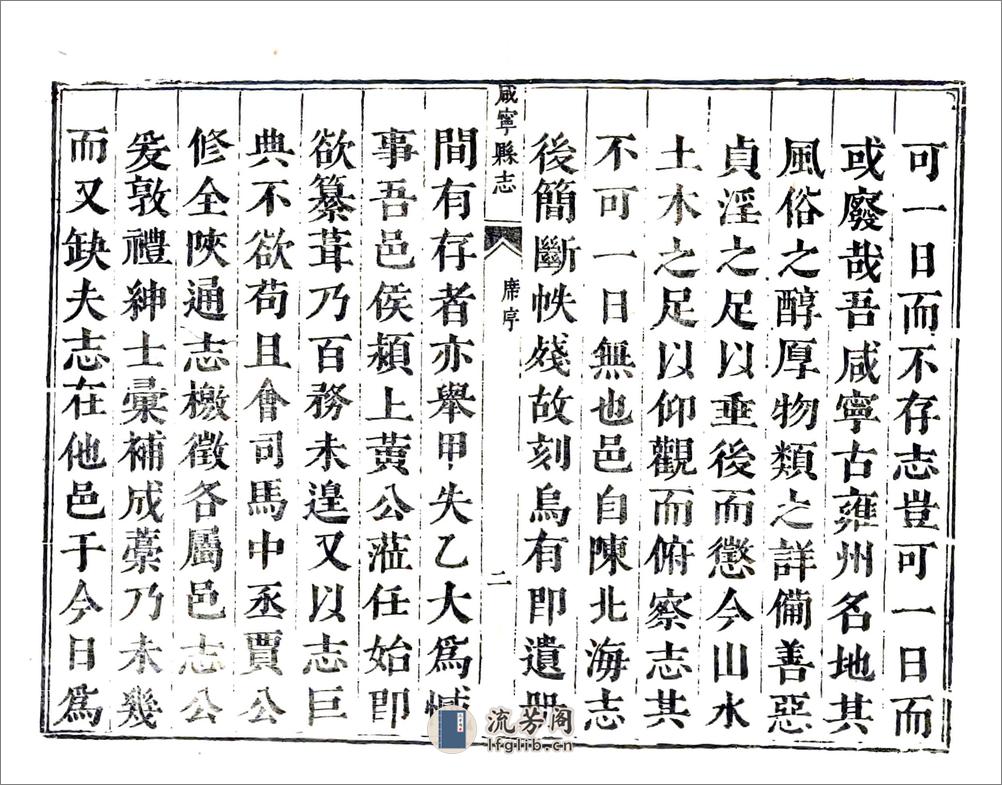 可一日而不存志豈可一日而
或廢哉吾咸寧古雍州名地其
風俗之醇厚物類之詳備善惡
貞淫之足以垂後而懲今山水
土木之足以仰觀而俯察志其
不可一日無也邑自陳北海志
後簡斷帙殘故刻烏有即遺冊
咸寧縣志
席序
二
間有存者亦舉甲失乙大為憾
事吾邑侯潁上黃公蒞任始即
欲纂葺乃百務未遑又以志巨
典不欲苟且會司馬中丞賈公
修全陝通志檄徵各屬邑志公
爰敦禮紳士彙補成藁乃未幾
而又缺夫志在他邑于今日為
流芳阁
lfglib.cn